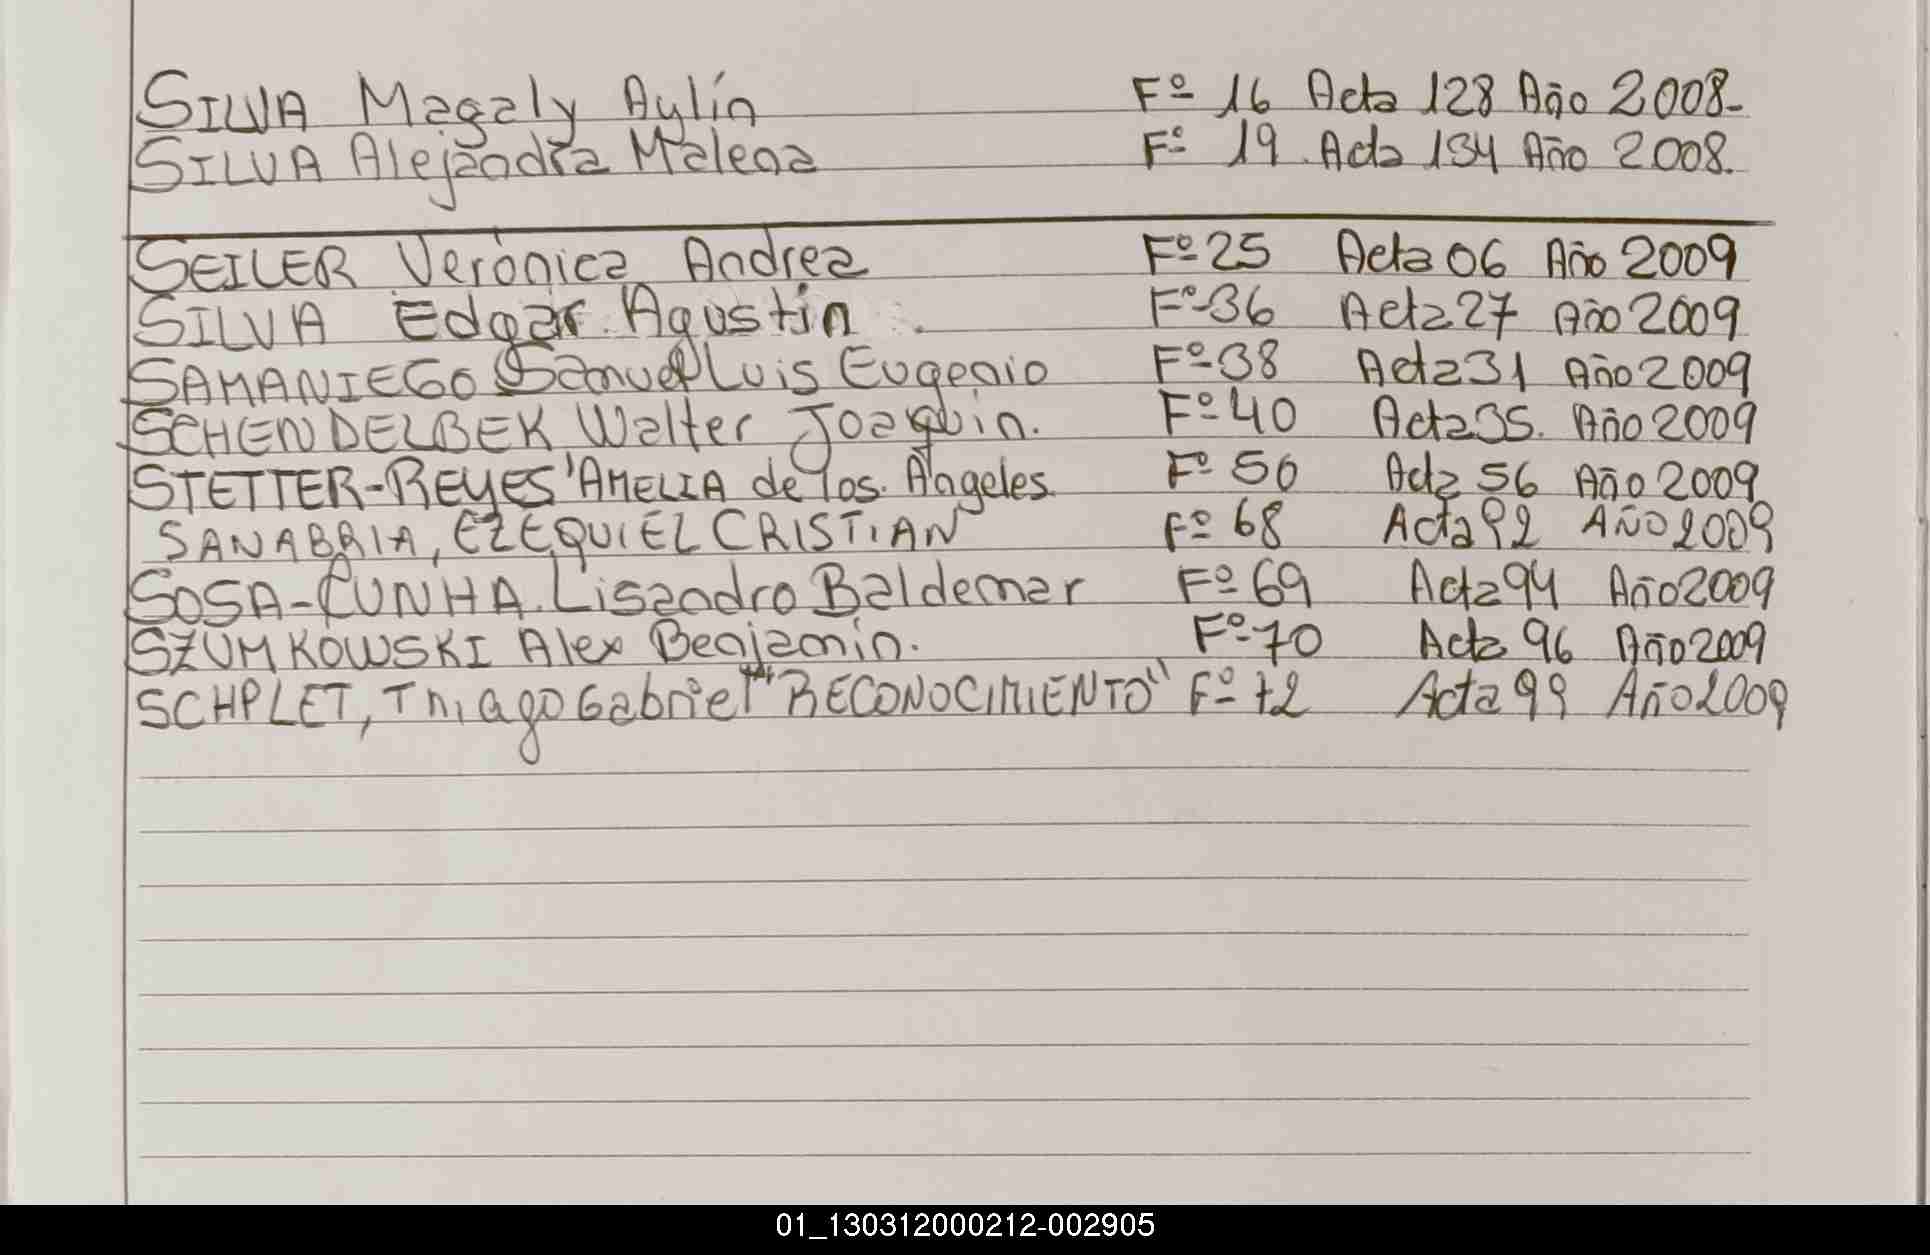 SILVA Magaly Aylín Fº 16 Acta 128 Año 2008-
SILVA Alejandra Malena Fº 19. Acta 134 Año 2008.
SEILER Verónica Andrea Fº 25 Acta 06 Año 2009
SILVA Edgar Agustín. Fº 36 Acta 27 Año 2009
SAMANIEGO Samuel Luis Eugenio Fº 38 Acta 31 Año 2009
SCHENDELBEK Walter Joaquin. Fº 40 Acta 35. Año 2009
STETTER-REYES AMELIA de los Angeles Fº 50 Acta 56 Año 2009
SANABRIA, EZEQUIEL CRISTIAN Fº 68 Acta 92 AÑO 2009
SOSA-CUNHA. Lisandro Baldemar Fº 69 Acta 94 Año 2009
SZUMKOWSKI Alex Benjamin. Fº 70 Acta 96 Año 2009
SCHPLET, Thiago Gabriel "RECONOCIMIENTO" Fº 72 Acta 99 Año 2009
01_130312000212-002905